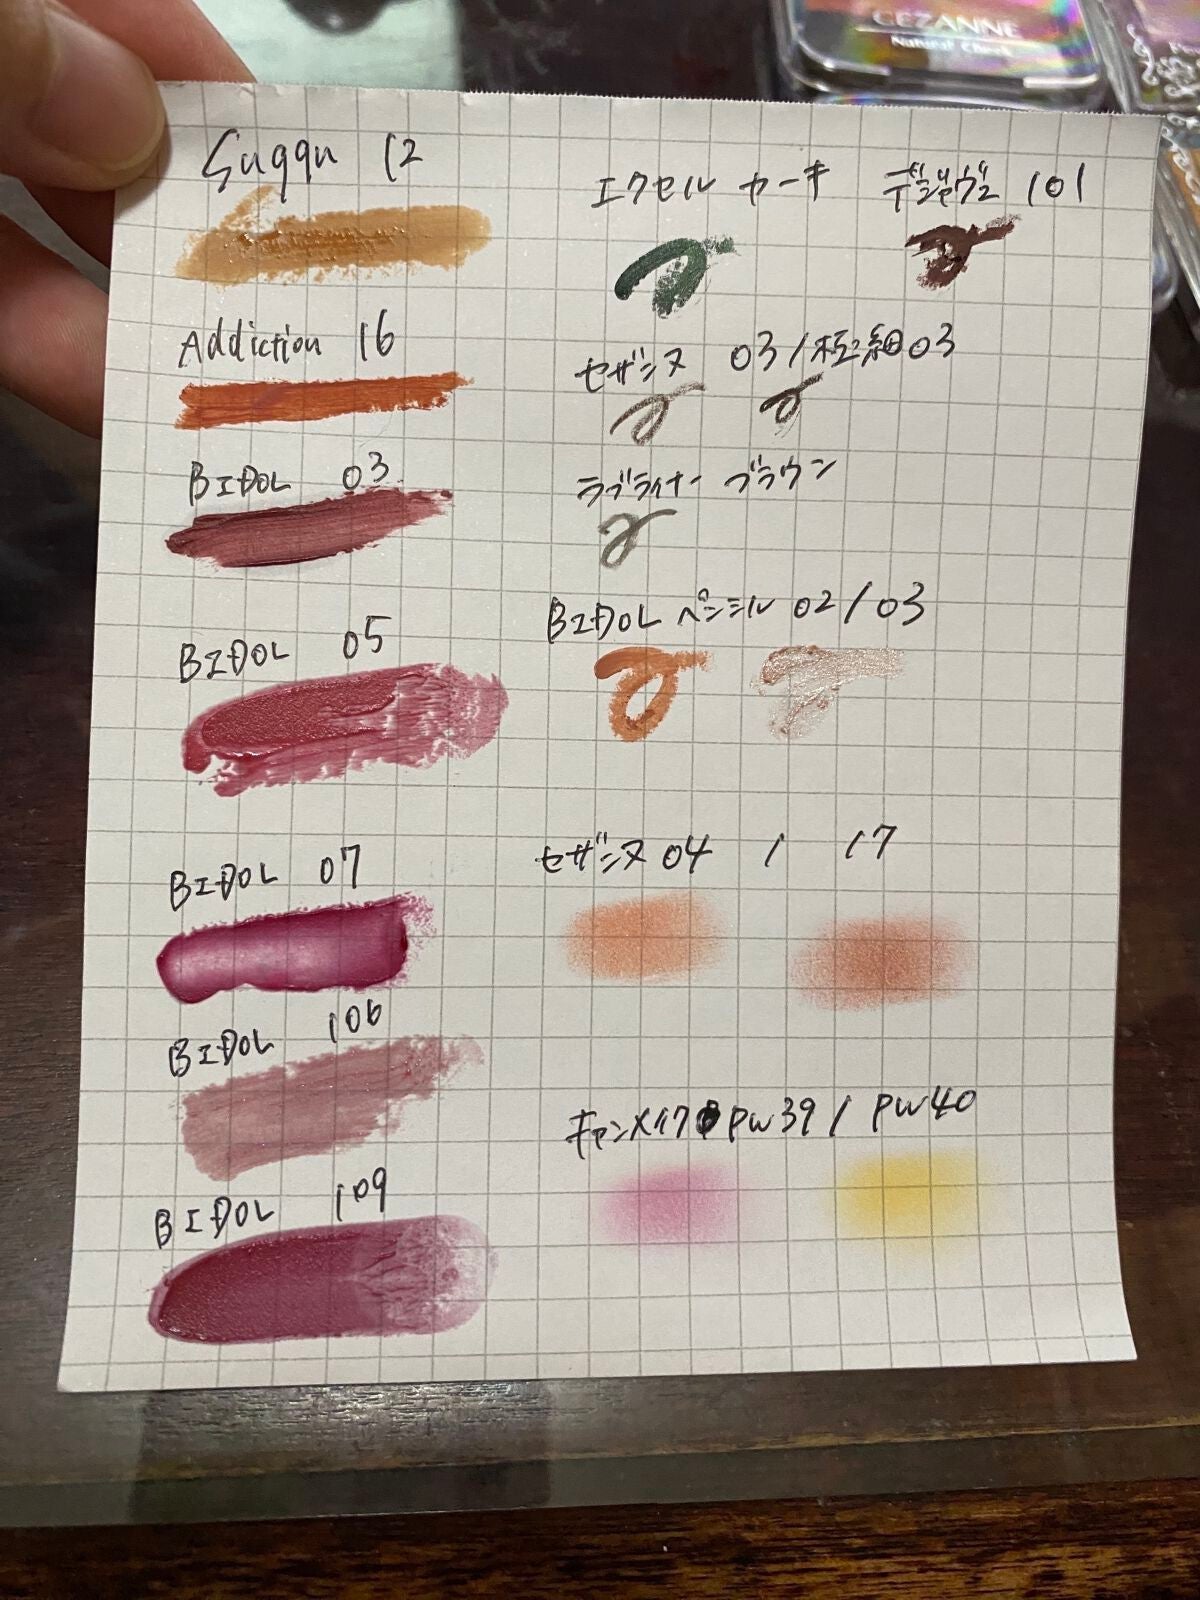 CEZANNE
Natural Cheek
Suqqu 12
Addiction 16
BIDOL 03
BIDOL 05
BIDOL 07
BIDOL 106
BIDOL 109
エクセル カーキ
デジャヴュ 101
セザンヌ 03/極細03
ラブライナー ブラウン
BIDOL ペンシル 02/03
セザンヌ 04 / 17
キャンメイク PW39/PW40